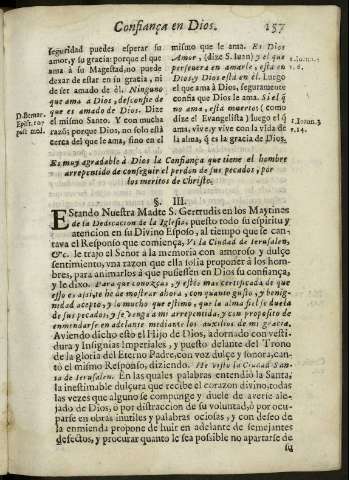 Confiança en Dios. 157
seguridad puedes esperar su
amor, y su gracia: porque el que
ama à su Magestad, no puede
dexar de estar en su gracia, ni
de ser amado de èl. Ninguno
que ama a Dios, desconfie de
que es amado de Dios. Dize
el mismo Santo. Y con mucha
razõ; porque Dios, no solo està
cerca del que le ama, sino en el
D. Bernar.
Epist. 107
post med.
mismo que le ama. Es Dios
Amor, (dize S. Iuan) y el que
persevera en amarle, està en
Dios, y Dios està en èl. Luego
el que ama à Dios, seguramente
confia que Dios le ama. Si el q̃
no ama, està muerto (como
dize el Evangelista) luego el q̃
ama, vive, y vive con la vida de
la alma, q̃ es la gracia de Dios.
1. Ioan. 3
v. 14.
Es muy agradable à Dios la Confiança que tiene el hombre
arrepentido de conseguir el perdon de sus pecados, por
los meritos de Christo.
§. III.
Estando Nuestra Madre S. Gertrudis en los Maytines
de la Dedicacion de la Iglesia, puesto todo su espiritu y
atencion en su Divino Esposo, al tiempo que se can-
tava el Responso que comiença, Vi la Ciudad de Ierusalen,
&c. le trajo el Señor a la memoria con amoroso y dulçe
sentimiento, vna razon que ella solia proponer à los hom-
bres, para animarlos à que pusiessen en Dios su confiança,
y le dixo. Para que conozcas, y estès mas certificada de que
esto es assi, te he de mostrar ahora, con quanto gusto, y benig-
nidad acepto, y lo mucho que estimo, que la alma fiel se duela
de sus pecados, y se venga à mi arrepentida, y con proposito de
enmendarse en adelante mediante los auxilios de mi gracia.
Aviendo dicho esto el Hijo de Dios, adornado con vesti-
dura y Insignias Imperiales, y puesto delante del Trono
de la gloria del Eterno Padre, con voz dulçe y sonora, can-
tò el mismo Responso, diziendo. He visto la Ciudad San-
ta de Ierusalen. En las quales palabras entendiò la Santa,
la inestimable dulçura que recibe el corazon divino, todas
las vezes que alguno se compunge y duele de averse ale-
jado de Dios, o por distraccion de su voluntad, ò por ocu-
parse en obras inutiles y palabras ociosas, y con deseo de
la enmienda propone de huir en adelante de semejantes
defectos, y procurar quanto le sea possible no apartarse de
su